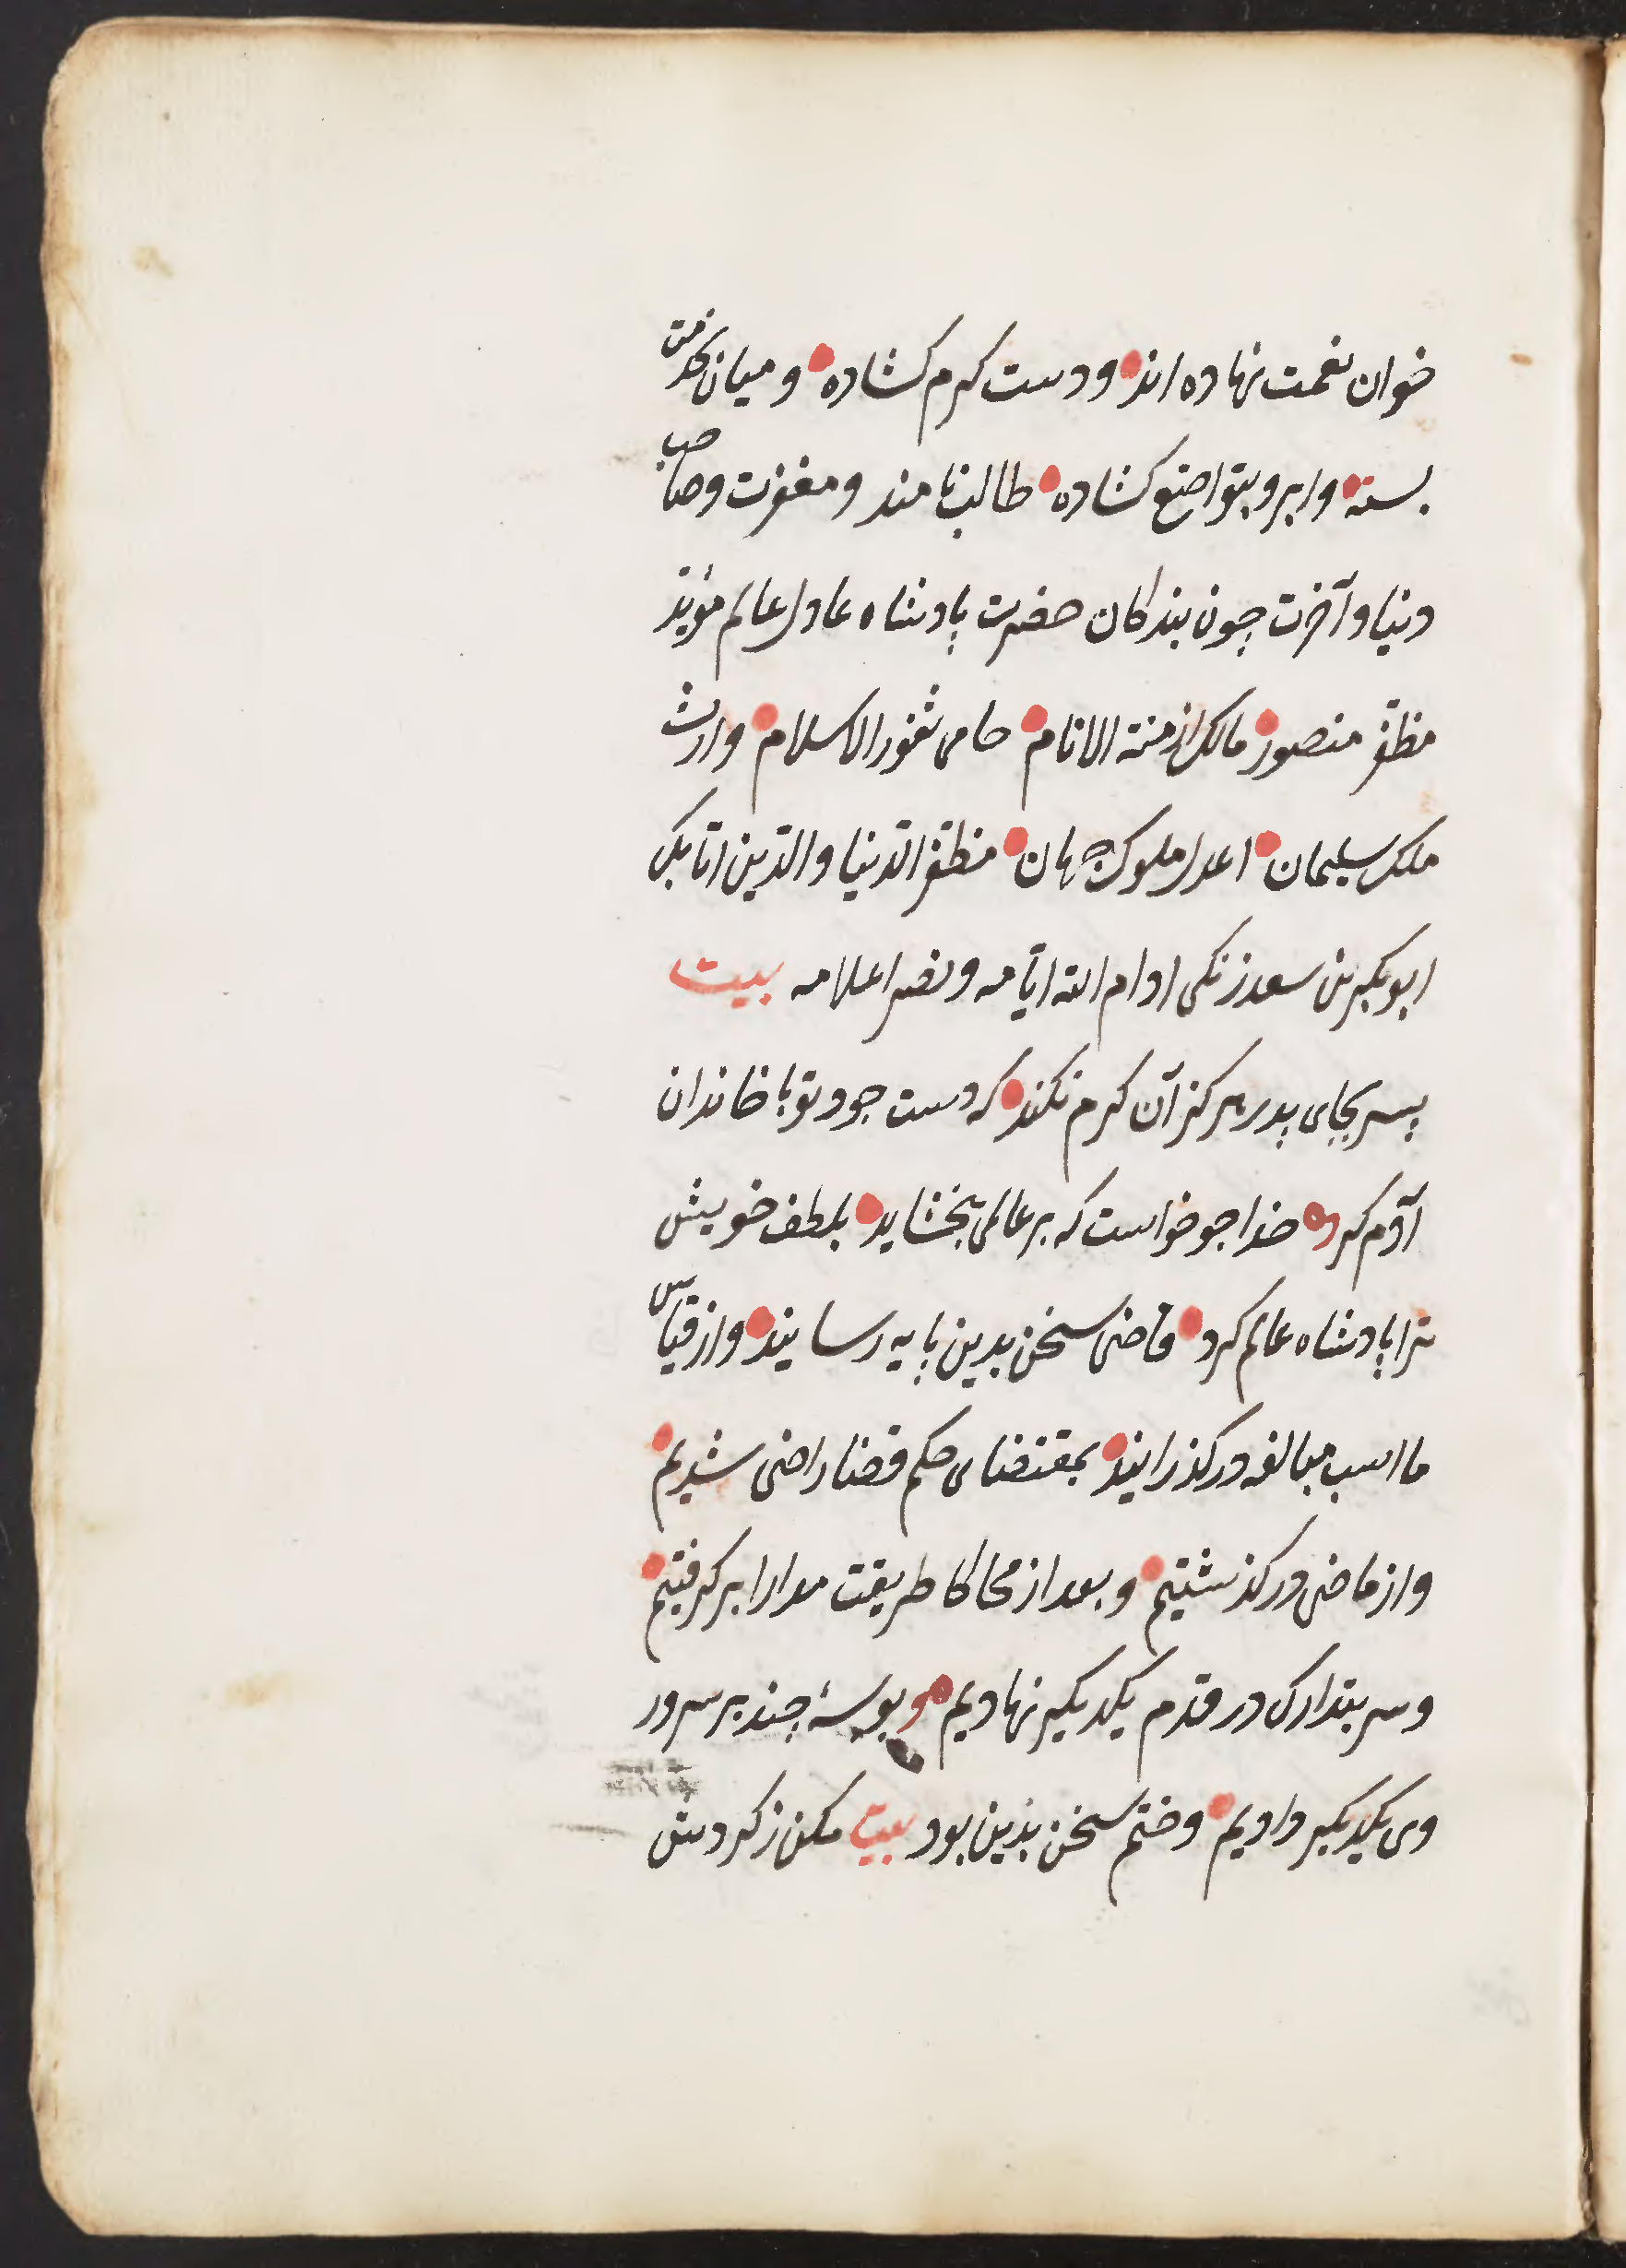 خوان نعمت نهاده اند و دست کرم کشاده و میان بخدمت
بسته و ابرو بتواضع کشاده طالب نامند و مغفرت و صاحب
دنیا و آخرت چون بندکان حضرت پادشاه عادل عالم مؤید
مظفّر منصور مالک ازمنة الانام حامی ثغور الاسلام وارث
ملک سلیمان اعدل ملوک جهان مظفّر الدّنیا والدّین اتابک
ابوبکر بن سعد زنکی ادام الله ایّامه و نصر اعلامه بیت
پسر بجای پدر هرکز آن کرم نکند که دست جود تو با خاندان
آدم کرد خدا جو خواست که بر عالمی بخشاید بلطف خویش
ترا پادشاه عالم کرد قاضی سخن بدین پایه رسانید و از قیاس
ما اسب مبالغه درکذرانید بمقتضای حکم قضا راضی شدیم
و از ماضی درکذشتیم و بعد از محاکا طریقت مدارا برکرفتیم
و سر بتدارک در قدم یکدیکر نهادیم و بوسهٔ چند بر سر ور
وی یکدیکر دادیم و ختم سخن بذین بود بیت مکن ز کردش